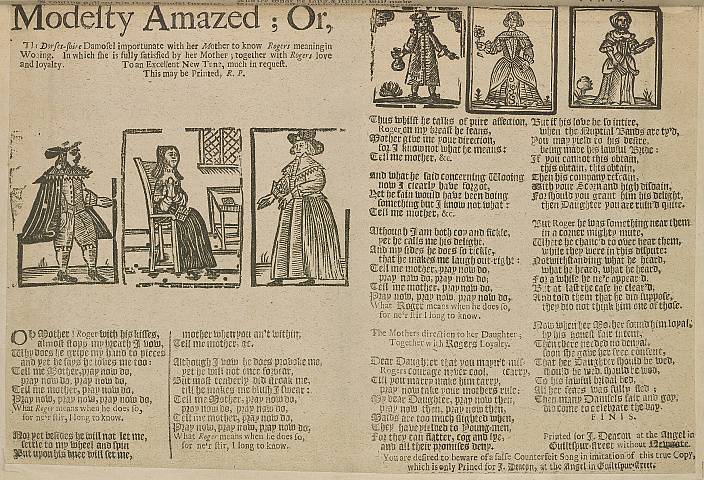 Modesty Amazed; Or,
The Dorset-shire Damosel importunate with her Mother to know Rogers meaning in
Wooing. In which she is fully satisfied by her Mother; together with Rogers love
and loyalty. To an Excellent New Tune, much in request.
This may be Printed, R. P.
Oh Mother! Roger with his kisses,
almost stops my breath I vow,
Why does he gripe my hand to pieces
and yet he says he loves me too:
Tell me Mother, pray now do,
pray now do, pray now do,
Tell me mother, pray now do,
Pray now, pray now, pray now do,
What Roger means when he does so,
for ne'r stir, I long to know.
Nor yet besides he will not let me,
settle to my wheel and spin
But upon his knee will set me,
mother when you an't within,
Tell me mother, &c.
Although I vow he does provoke me,
yet he will not once forbear,
But most tenderly did stroak me,
till he makes me blush I swear:
Tell me Mother, pray now do,
pray now do, pray now do,
Tell me mother, pray now do,
Pray now, pray now, pray now do,
What Roger means when he does so,
for ne'r stir, I long to know.
Thus whilst he talks of pure affection,
Roger on my breast he leans,
Mother give me your direction,
for I know not what he means:
Tell me mother, &c.
And what he said concerning Wooing
now I clearly have forgot,
Yet he fain would have been doing
something but I know not what:
Tell me mother, &c.
Although I am both coy and fickle,
yet he calls me his delight,
And my sides he does so tickle,
that he makes me laugh out-right:
Tell me mother, pray now do,
pray now do, pray now do,
Tell me mother, pray now do,
Pray now, pray now, pray now do,
What Roger means when he does so,
for ne'r stir I long to know.
The Mothers direction to her Daughter;
Together with Rogers Loyalty.
Dear Daughter that you mayn't mis-
Rogers courage never cool, carry,
Till you marry make him tarry,
pray now take your mothers rule:
My dear Daughter, pray now then,
pray now then, pray now then,
Maids are too much slighted when,
They have yielded to Young-men,
For they can flatter, cog and lye,
and all their promises deny.
But if his love be so intire,
when the Nuptial Bands are ty'd,
You may yield to his desire,
being made his lawful Bride:
If you cannot this obtain,
this obtain, this obtain,
Then his company refrain,
With your Scorn and high disdain,
For should you grant him his delight,
then Daughter you are ruin'd quite.
But Roger he was something near them
in a corner mighty mute,
Where he chanc'd to over hear them,
while they were in this dispute:
Notwithstanding what he heard,
what he heard, what he heard,
For a while he ne'r appear'd,
But at last the case he clear'd,
And told them that he did suppose,
they did not think him one of those.
Now when her Mother found him loyal,
by his honest fair intent,
Then there needed no denyal,
soon she gave her free consent,
That her Daughter should be wed,
should be wed, should be wed,
To his faithful bridal bed,
All her fears was fully fled;
Then many Damsels fair and gay,
did come to celebrate the day.
F I N I S.
Printed for J. Deacon at the Angel in
Guiltspur-street without Newgate.
You are desired to beware of a false Counterfeit Song in imitation of this true Copy,
which is only Printed for J. Deacon, at the Angel in Guiltspur-street.